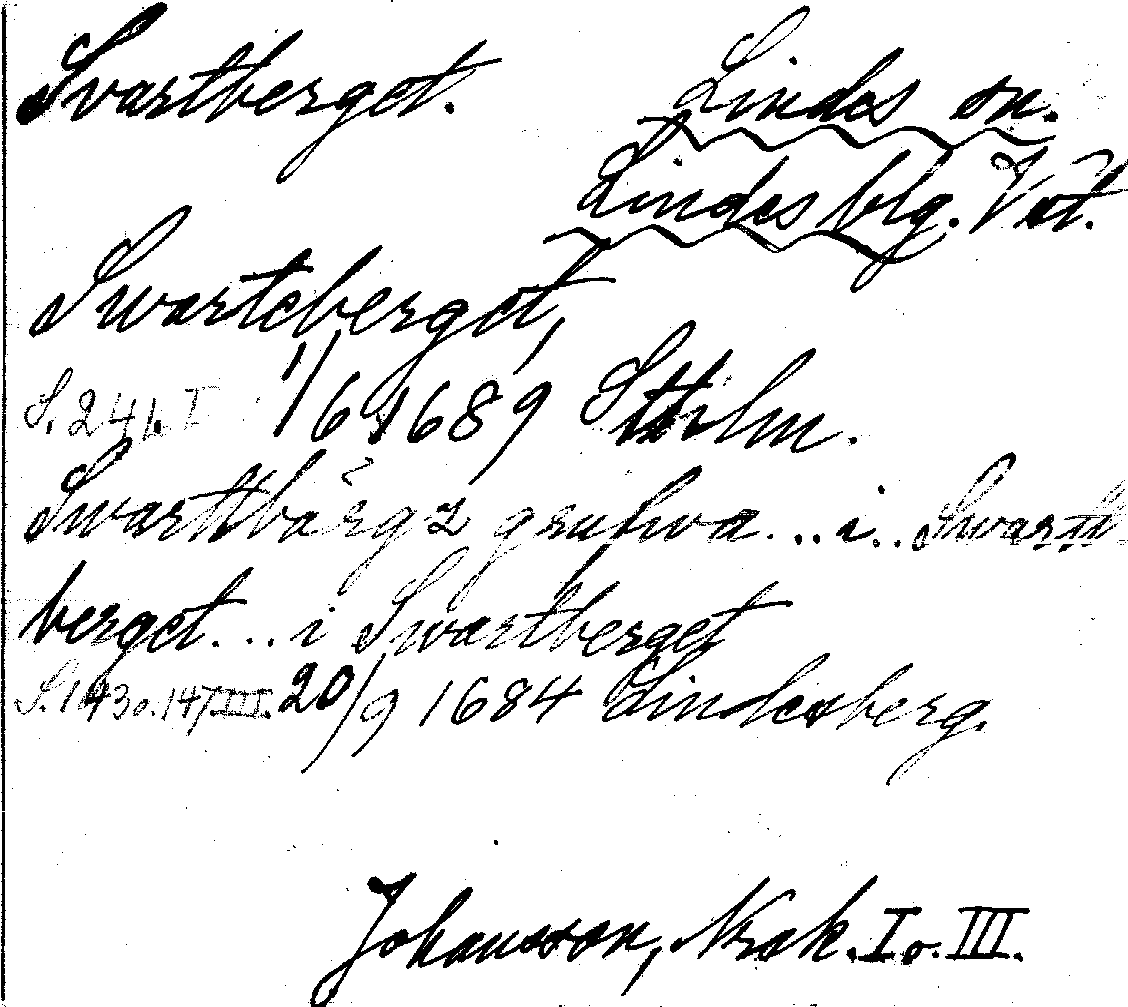 Svartberget. Lindes sn.
Lindesblg. Vstm.
Swarteberget,
S. 241. I 1/6 1689 Sthlm.
Swarttbärgz grufwa... i.. Swartt-
berget... i Swartberget
S. 143 o. 147 III. 20/9 1684 Lindesberg.
Johansson, Norak. I o. III.